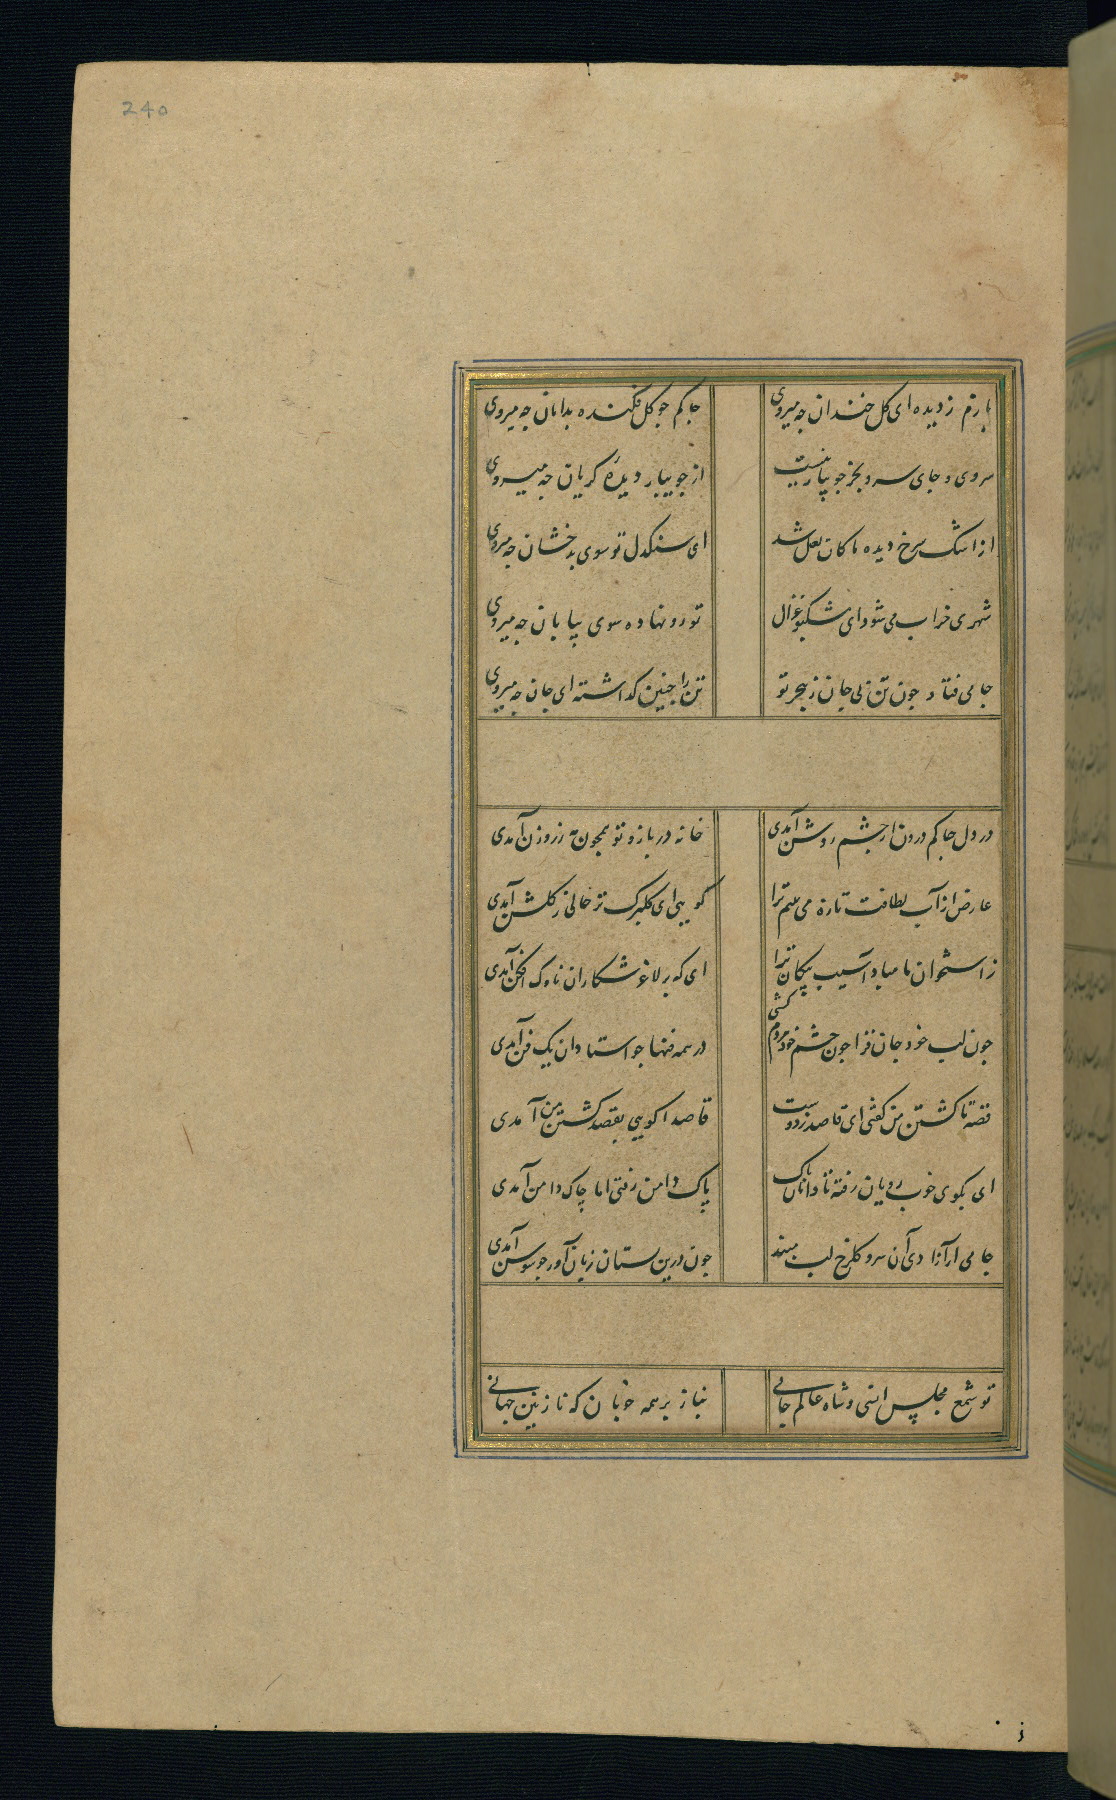 240
بارم ز دیده ای کل خندان چه میروی
جاکم جو کل فکنده بدامان چه میروی
سروی و جای سرو بجز جویبار نیست
از جویبار دیدهٔ کریان چه میروی
از اشک سرخ دیده ما کان لعل شد
ای سنکدل تو سوی بدخشان چه میروی
شهری خراب می شود ای مشکبو غزال
تو رو نهاده سوی بیابان چه میروی
جامی فتاد چون تن بی جان ز هجر تو
تن را چنین کذاشته ای جان چه میروی
در دل جاکم درون از چشم روشن آمدی
خانه در باز و تو همچون مه ز روزن آمدی
عارض از آب لطافت تازه می بینم ترا
کویی ای کلبرک تر حالی ز کلشن آمدی
ز استخوان ما مبادا آسیب پیکان ترا
ای که بر لاغر شکاران ناوک افکن آمدی
چون لب خود جان فزا چون چشم خود مردم کشی
در همه فنها چو استادان یک فن آمدی
قصه تا کشتن من کفتی ای قاصد ز دوست
قاصدا کویی بقصد کشتن من آمدی
ای بکوی خوب رویان رفته نادانان پاک
پاک دامن رفتی اما چاک دامن آمدی
جامی ار آزادی آن سرو کلرخ لب مبند
چون درین بستان زبان آور چو سوسن آمدی
تو شمع مجلس انسی و شاه عالم جانی
نیاز بر همه خوبان که نازنین جهانی